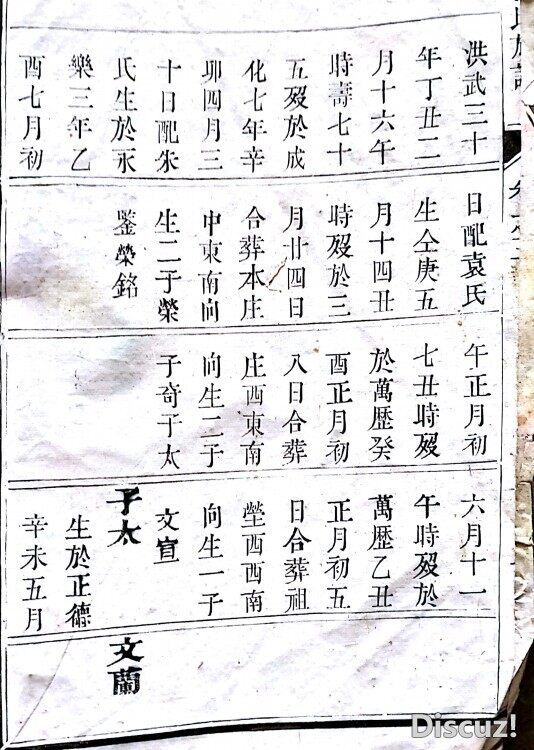 洪武三十
年丁丑二
月十六午
時壽七十
五歿於成
化七年辛
卯四月三
十日配朱
氏生於永
樂三年乙
酉七月初
日配袁氏
生仝庚五
月十四丑
時歿於三
月廿四日
合葬本庄
中東南向
生二子榮
鋻榮銘
午正月初
七丑時歿
於萬歷癸
酉正月初
八日合葬
庄西東南
向生二子
子奇子太
六月十一
午時歿於
萬歷乙丑
正月初五
日合葬祖
塋酉西南
向生一子
文宣
子太
生於正德
辛未五月
文蘭
Discuz!